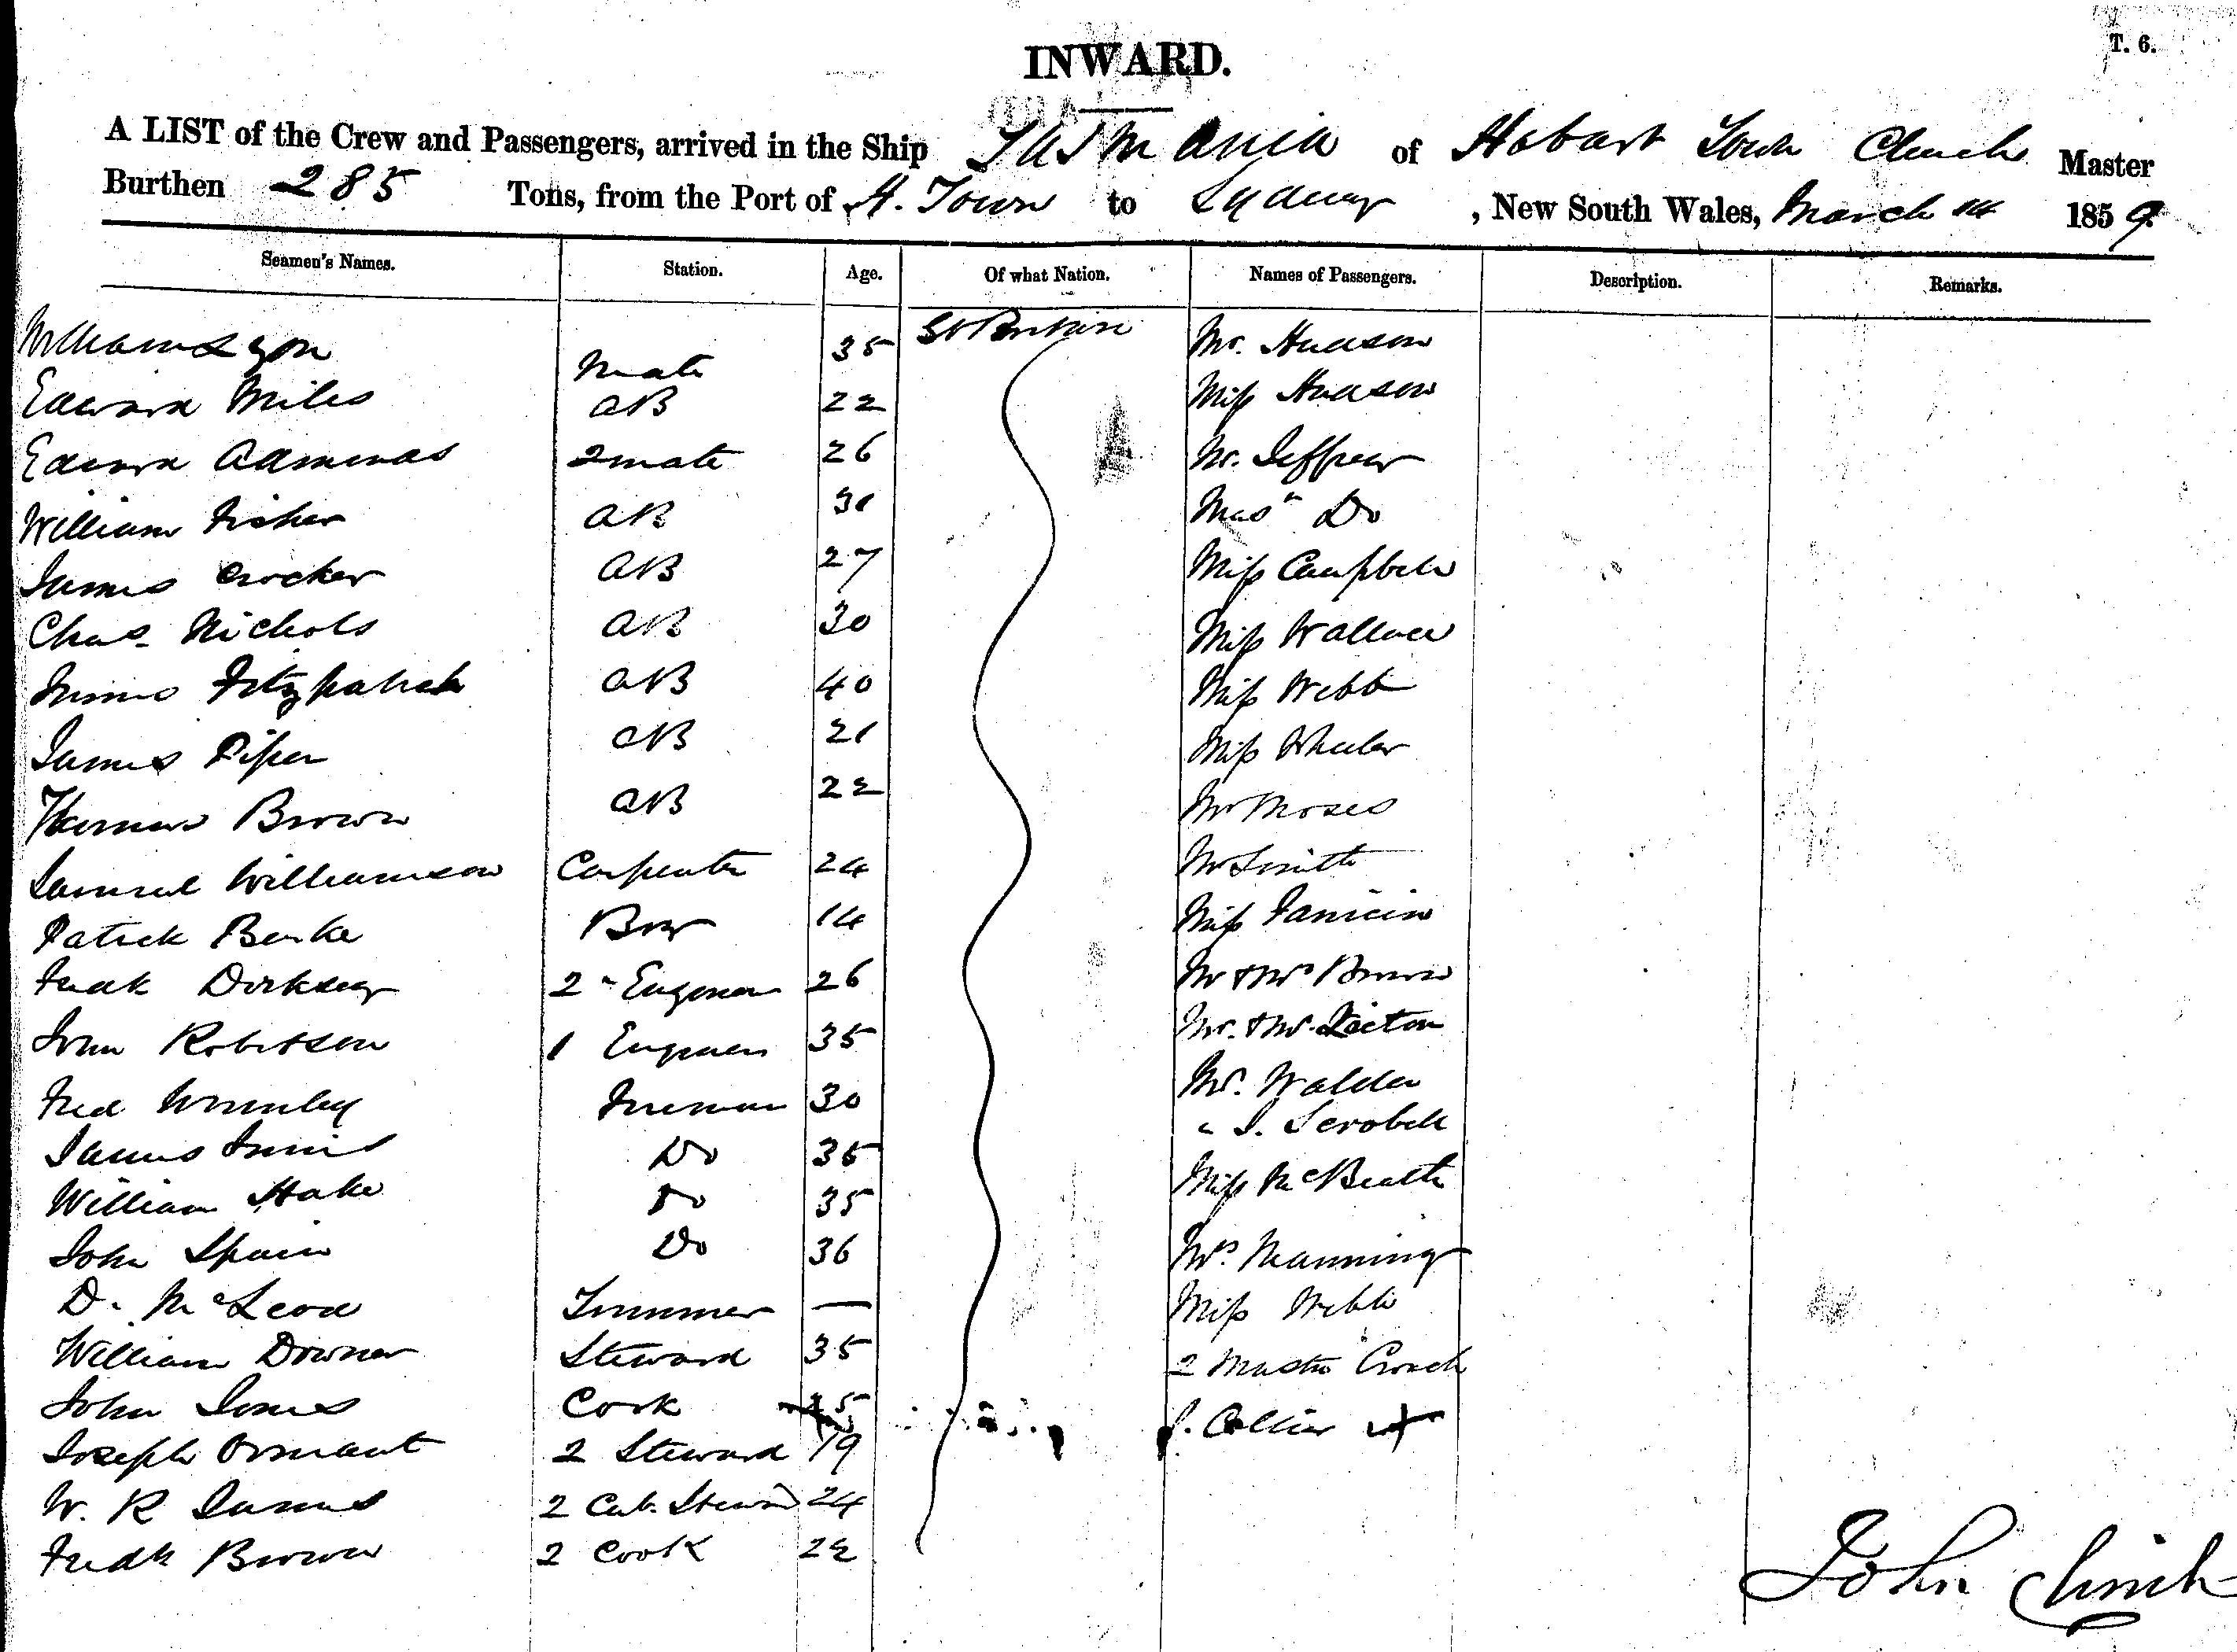 T. 6.
INWARD.
A LIST of the Crew and Passengers, arrived in the Ship Tasmania of Hobart Town Clinch Master
Burthen 285 Tons, from the Port of H. Town to Sydney, New South Wales, March 14 1859.
Seamen's Names. Station. Age. Of what Nation. Names of Passengers. Description. Remarks.
William Lyon Mate 35 Gt Britain Mr. Hudson
Edward Miles AB 22 Miss Hudson
Edward Admends 2 mate 26 Mr. Jeffrey
William Fisher AB 31 Mas Do
James Crocker AB 27 Miss Campbell
Chas. Nichols AB 30 Miss Wallace
James Fitzpatrick AB 40 Miss Webb
James Piper AB 21 Miss Wheeler
Thomas Brown AB 22 Mr Moses
Samuel Williamson Carpenter 24 Mr Smith
Patrick Burke Boy 14 Miss
Fredk Dirksey 2 Engineer 26 Mr & Mrs Brown
John Robertson 1 Engineer 35 Mr. & Mrs.
Fred Fireman 30 Mr. Walder
James Innis Do 35 " J. Scrobell
William Hake Do 35 Miss McBeath
John Spain Do 36 Mrs Manning
D. McLeod Trimmer — Miss Webb
William Downer Steward 35 2 Master
John Jones Cook 25 J. Collier
Joseph Ormant 2 Steward 19
W. R James 2 Cab. Steward 24
Fredk Brown 2 Cook 22
John Clinch